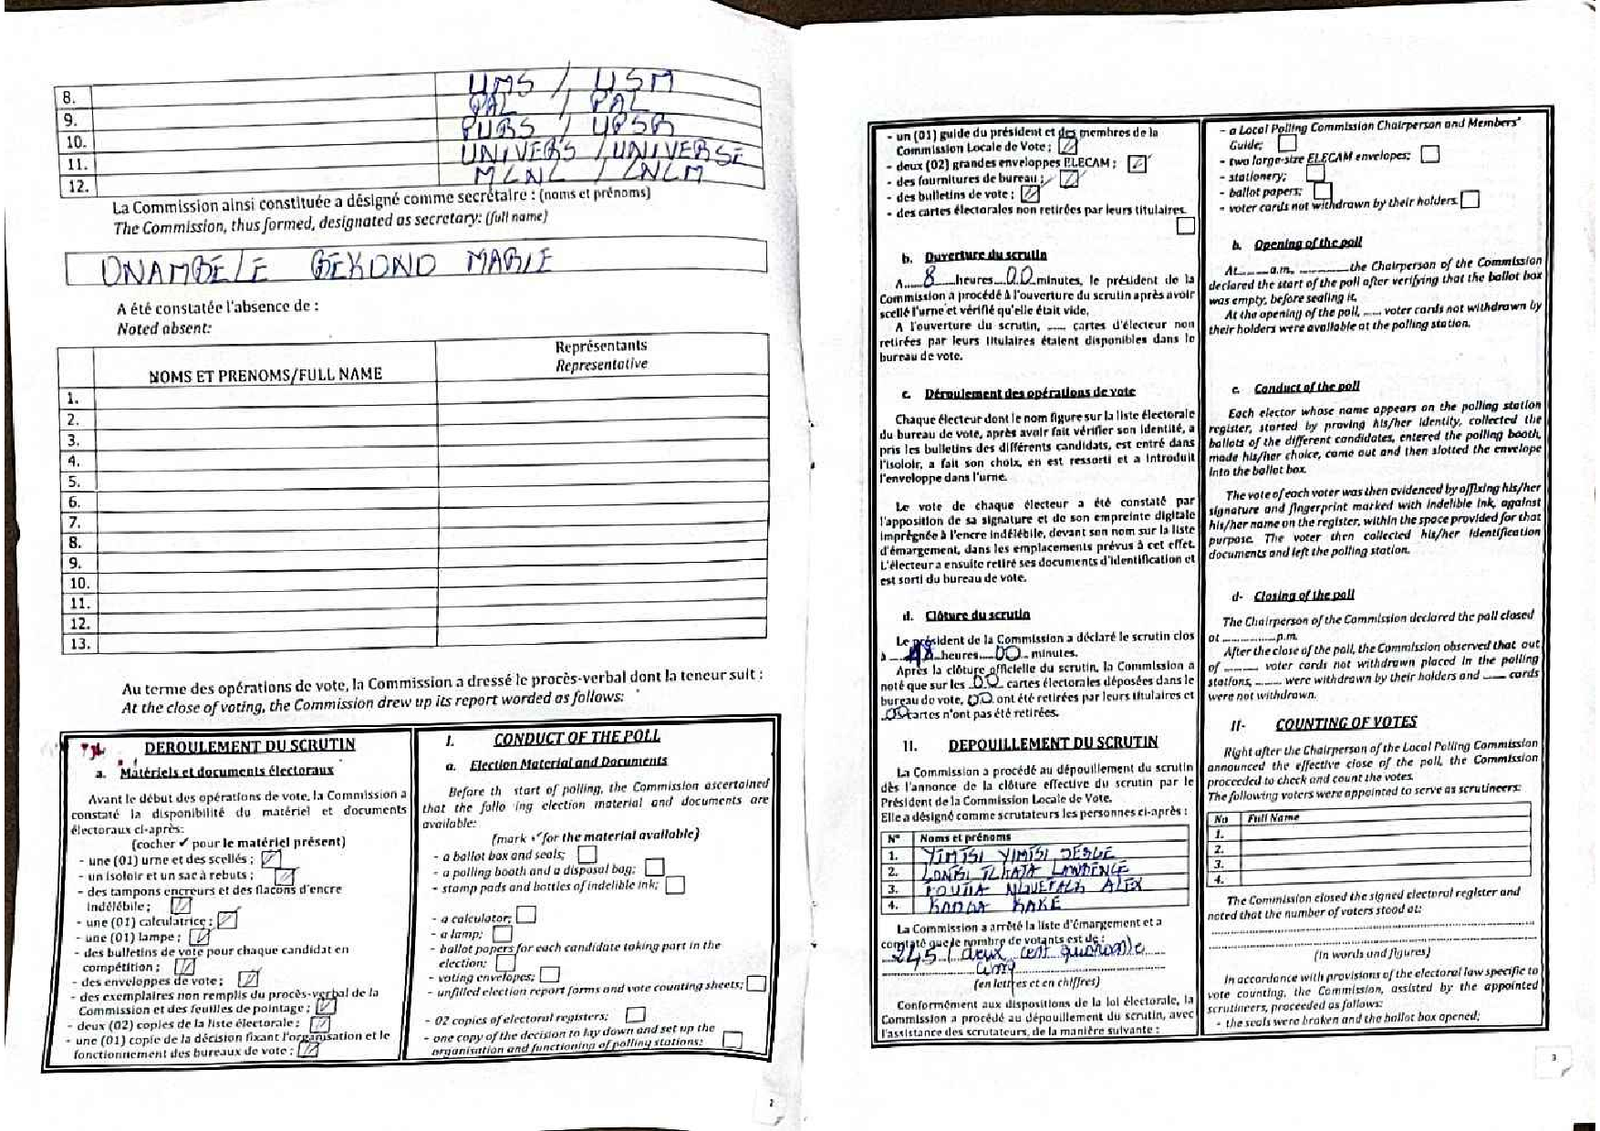 8. UMS / USM
9. PAL / PAL
10. PURS / UPSR
11. UNIVERS / UNIVERSE
12. MCNC / CNCM
La Commission ainsi constituée a désigné comme secrétaire : (noms et prénoms)
The Commission, thus formed, designated as secretary: (full name)
ONAMBELE BEKONO MARIE
A été constatée l'absence de :
Noted absent:
NOMS ET PRENOMS/FULL NAME
Représentants
Representative
1.
2.
3.
4.
5.
6.
7.
8.
9.
10.
11.
12.
13.
Au terme des opérations de vote, la Commission a dressé le procès-verbal dont la teneur suit :
At the close of voting, the Commission drew up its report worded as follows:
DEROULEMENT DU SCRUTIN
a. Matériels et documents électoraux
Avant le début des opérations de vote, la Commission a
constaté la disponibilité du matériel et documents
électoraux ci-après:
(cocher ✓ pour le matériel présent)
- une (01) urne et des scellés ;
- un isoloir et un sac à rebuts ;
- des tampons encreurs et des flacons d'encre
indélébile ;
- une (01) calculatrice ;
- une (01) lampe ;
- des bulletins de vote pour chaque candidat en
compétition ;
- des enveloppes de vote ;
- des exemplaires non remplis du procès-verbal de la
Commission et des feuilles de pointage ;
- deux (02) copies de la liste électorale ;
- une (01) copie de la décision fixant l'organisation et le
fonctionnement des bureaux de vote ;
I. CONDUCT OF THE POLL
a. Election Material and Documents
Before th start of polling, the Commission ascertained
that the follo ing election material and documents are
available:
(mark ✓ for the material available)
- a ballot box and seals;
- a polling booth and a disposal bag;
- stamp pads and bottles of indelible ink;
- a calculator;
- a lamp;
- ballot papers for each candidate taking part in the
election;
- voting envelopes;
- unfilled election report forms and vote counting sheets;
- 02 copies of electoral registers;
- one copy of the decision to lay down and set up the
organisation and functioning of polling stations;
2
- un (01) guide du président et des membres de la
Commission Locale de Vote ;
- deux (02) grandes enveloppes ELECAM ;
- des fournitures de bureau ;
- des bulletins de vote ;
- des cartes électorales non retirées par leurs titulaires.
b. Ouverture du scrutin
A 8 heures 00 minutes, le président de la
Commission a procédé à l'ouverture du scrutin après avoir
scellé l'urne et vérifié qu'elle était vide,
A l'ouverture du scrutin, ..... cartes d'électeur non
retirées par leurs titulaires étaient disponibles dans le
bureau de vote.
c. Déroulement des opérations de vote
Chaque électeur dont le nom figure sur la liste électorale
du bureau de vote, après avoir fait vérifier son identité, a
pris les bulletins des différents candidats, est entré dans
l'isoloir, a fait son choix, en est ressorti et a introduit
l'enveloppe dans l'urne.
Le vote de chaque électeur a été constaté par
l'apposition de sa signature et de son empreinte digitale
imprégnée à l'encre indélébile, devant son nom sur la liste
d'émargement, dans les emplacements prévus à cet effet.
L'électeur a ensuite retiré ses documents d'identification et
est sorti du bureau de vote.
d. Clôture du scrutin
Le président de la Commission a déclaré le scrutin clos
à 18 heures 00 minutes.
Après la clôture officielle du scrutin, la Commission a
noté que sur les 00 cartes électorales déposées dans le
bureau de vote, 00 ont été retirées par leurs titulaires et
00 cartes n'ont pas été retirées.
II. DEPOUILLEMENT DU SCRUTIN
La Commission a procédé au dépouillement du scrutin
dès l'annonce de la clôture effective du scrutin par le
Président de la Commission Locale de Vote.
Elle a désigné comme scrutateurs les personnes ci-après :
N° Noms et prénoms
1. YIMTSI YIMTSI SERGE
2. TCHATA LAWRENCE
3. ALEX
4. KAMGA KAKE
La Commission a arrêté la liste d'émargement et a
constaté que le nombre de votants est de :
245 ( deux cent quarante
cinq
(en lettres et en chiffres)
Conformément aux dispositions de la loi électorale, la
Commission a procédé au dépouillement du scrutin, avec
l'assistance des scrutateurs, de la manière suivante :
- a Local Polling Commission Chairperson and Members'
Guide;
- two large-size ELECAM envelopes;
- stationery;
- ballot papers;
- voter cards not withdrawn by their holders.
b. Opening of the poll
At ..... a.m, ............ the Chairperson of the Commission
declared the start of the poll after verifying that the ballot box
was empty, before sealing it.
At the opening of the poll, ..... voter cards not withdrawn by
their holders were available at the polling station.
c. Conduct of the poll
Each elector whose name appears on the polling station
register, started by proving his/her identity, collected the
ballots of the different candidates, entered the polling booth,
made his/her choice, came out and then slotted the envelope
into the ballot box.
The vote of each voter was then evidenced by affixing his/her
signature and fingerprint marked with indelible ink, against
his/her name on the register, within the space provided for that
purpose. The voter then collected his/her identification
documents and left the polling station.
d- Closing of the poll
The Chairperson of the Commission declared the poll closed
at ............... p.m.
After the close of the poll, the Commission observed that out
of ........ voter cards not withdrawn placed in the polling
stations, ........ were withdrawn by their holders and ..... cards
were not withdrawn.
II- COUNTING OF VOTES
Right after the Chairperson of the Local Polling Commission
announced the effective close of the poll, the Commission
proceeded to check and count the votes.
The following voters were appointed to serve as scrutineers:
No Full Name
1.
2.
3.
4.
The Commission closed the signed electoral register and
noted that the number of voters stood at:
(In words and figures)
In accordance with provisions of the electoral law specific to
vote counting, the Commission, assisted by the appointed
scrutineers, proceeded as follows:
- the seals were broken and the ballot box opened;
3